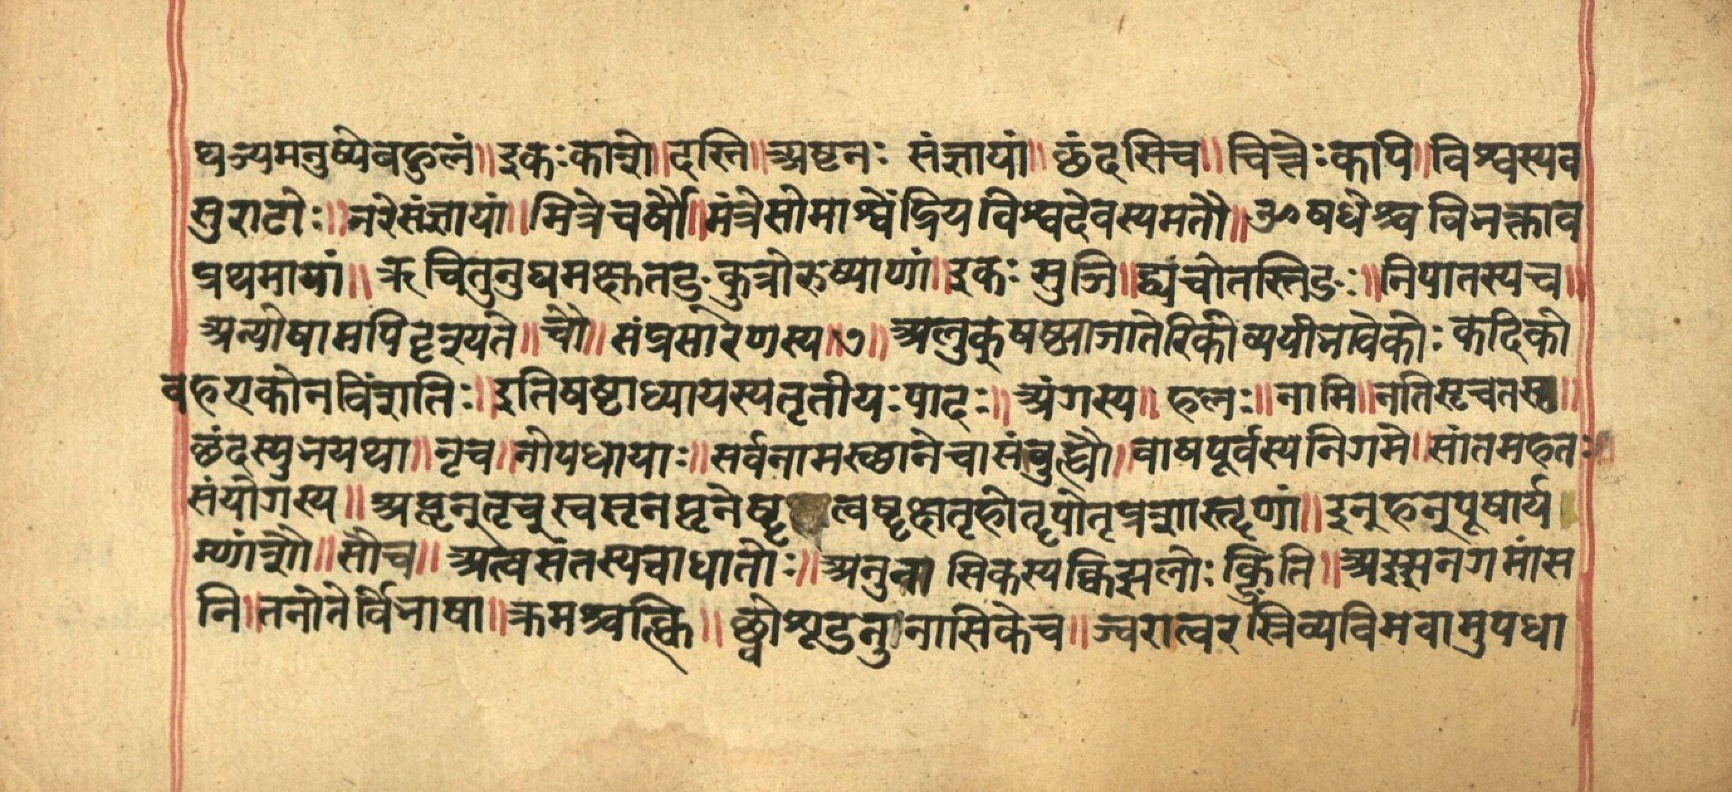 घञ्यमनुष्येबहुलं॥इकःकाशे॥दस्ति॥अष्टनः संज्ञायां॥छंदसिच॥चितेःकपि॥विश्वस्यव
सुराटोः॥नरेसंज्ञायां॥मित्रेचर्षौ॥मंत्रेसोमाश्वेंद्रियविश्वदेवस्यमतौ॥ओषधेश्चविभक्ताव
प्रथमायां॥ऋचितुनुघमक्षुतङ्कुत्रोरुष्याणां॥इकः सुञि॥द्व्यचोतस्तिङः॥निपातस्यच॥
अन्येषामपिदृश्यते॥चौ॥संप्रसारणस्य॥७॥अलुक्षष्ठ्याजातेरिकोव्ययीभावेकोः कदिको
वहएकोनविंशतिः॥इतिषष्टाध्यायस्यतृतीयःपादः॥अंगस्य॥हलः॥नामि॥नतिसृचतसृ॥
छंदस्युभयथा॥नृच॥नोपधायाः॥सर्वनामस्थानेचासंबुद्धौ॥वाषपूर्वस्यनिगमे॥सांतमहतः
संयोगस्य॥अप्तृन्तृच्स्वसृनप्तृनेष्टृत्वष्टृक्षतृहोतृपोतृप्रशास्तृणां॥इन्हन्पूषार्य
म्णांशौ॥सौच॥अत्वसंतस्यचाधातोः॥अनुनासिकस्यक्विझलोः क्ङिति॥अज्झनगमांस
नि॥तनोतेर्विभाषा॥क्रमश्चत्क्वि॥छ्वोःशूडनुनासिकेच॥ज्वरत्वरस्रिव्यविमवामुपधा